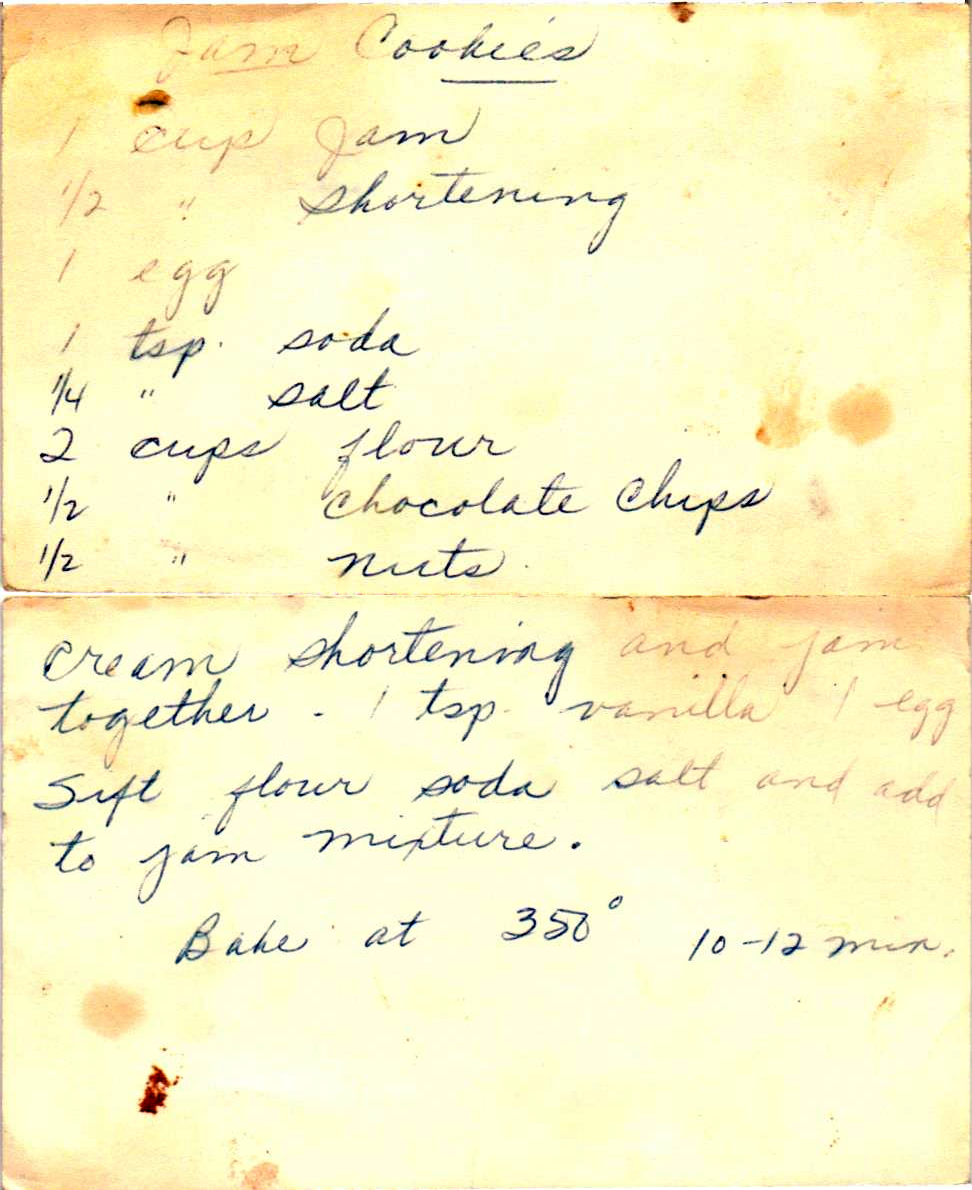 Jam Cookies
1 cup Jam
1/2 " shortening
1 egg
1 tsp. soda
1/4 " salt
2 cups flour
1/2 " chocolate chips
1/2 " nuts.
cream shortening and jam
together. 1 tsp. vanilla 1 egg
Sift flour soda salt and add
to jam mixture.
Bake at 350° 10-12 min.